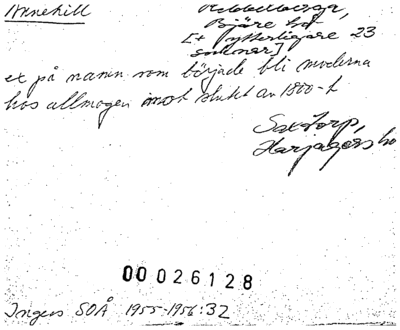 Annehill
Hebbelberga,
Bjäre hd
[+ ytterligare 23
socknar]
ex på namn som började bli moderna
hos allmogen mot slutet av 1800-t.
Saxtorp,
Harjagers h
00 026128
Ingers SOÅ 1955-1956:32